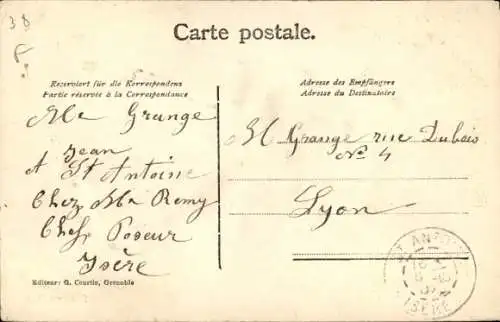 38
F
Carte postale.
Reserviert für die Korrespondenz
Partie réservée à la Correspondance
Adresse des Empfängers
Adresse du Destinataire
Mr Grange
Jean
A St Antoine
Chez Mr Remy
Chef Poseur
Isère
M Grange rue Dubois
No 4
Lyon
Editeur: G. Courtin, Grenoble
ST ANTOINE
ISERE